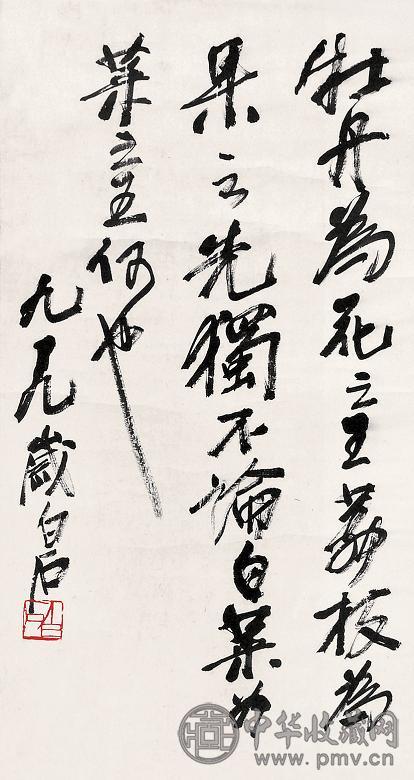 牡丹為花之王荔枝為
果之先獨不論白菜為
菜之王何也
九歲白石
中华收藏网
www.pmv.cn